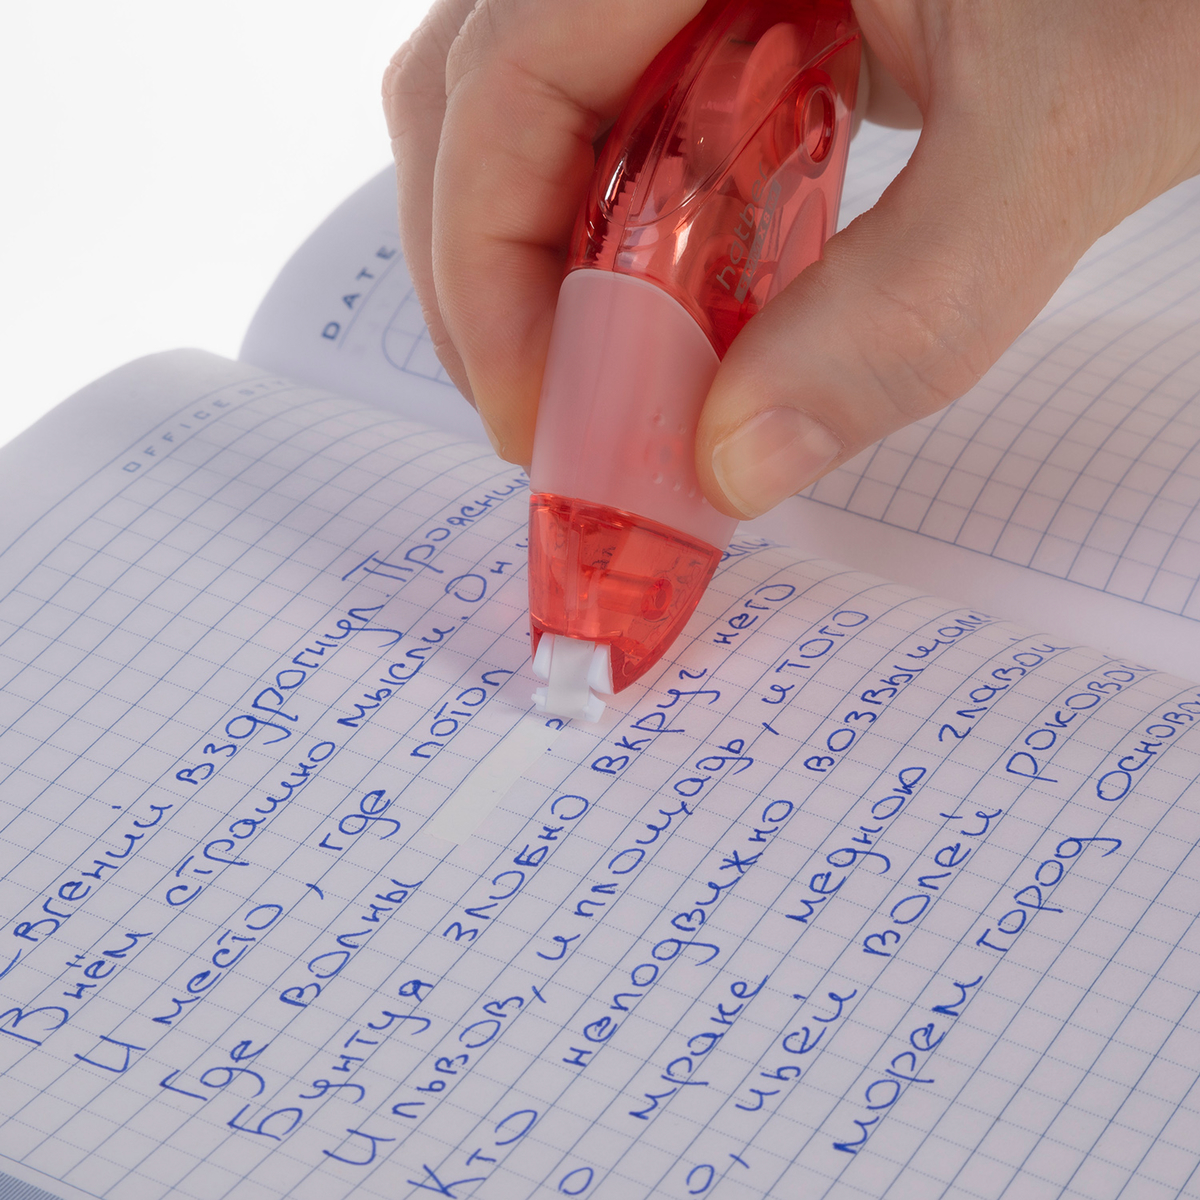 DATE
OFFICE
hatber
Евгений вздрогнул. Прояснил
В нём страшно мысли. Он
И место, где потоп
Где волны
Бунтуя злобно вкруг него
И львов, и площадь, и того
Кто неподвижно возвышал
во мраке медною главой
о, чьей волей роковой
морем город основа